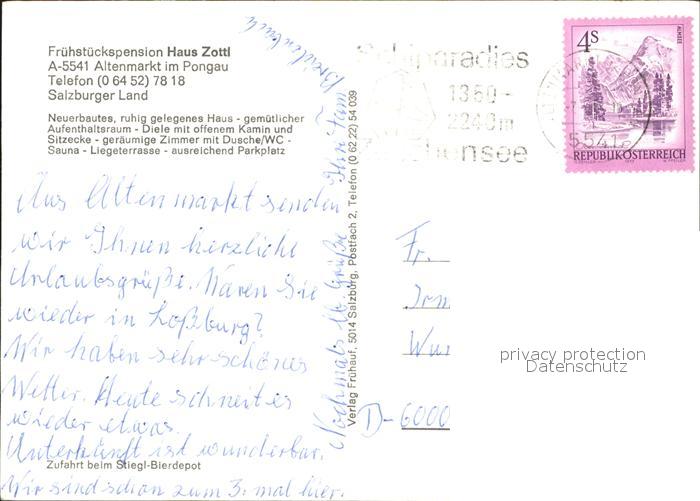 Frühstückspension Haus Zottl
A-5541 Altenmarkt im Pongau
Telefon (0 64 52) 78 18
Salzburger Land
Neuerbautes, ruhig gelegenes Haus - gemütlicher
Aufenthaltsraum - Diele mit offenem Kamin und
Sitzecke - geräumige Zimmer mit Dusche/WC -
Sauna - Liegeterrasse - ausreichend Parkplatz
Aus Altenmarkt senden
wir Ihnen herzliche
Urlaubsgrüße. Waren Sie
wieder in Loßburg?
Wir haben sehr schönes
Wetter. Heute schneit es
wieder etwas.
Unterkunft ist wunderbar.
Zufahrt beim Stiegl-Bierdepot
Wir sind schon zum 3. mal hier.
Nochmals lb. Grüße
Ihre Fam.
Verlag Frühauf, 5014 Salzburg, Postfach 2, Telefon (0 62 22) 54 039
Schiparadies
1350-
2240m
5541
4S
ALMSEE
REPUBLIK ÖSTERREICH
Fr.
Irm
Wur
D-6000
privacy protection
Datenschutz